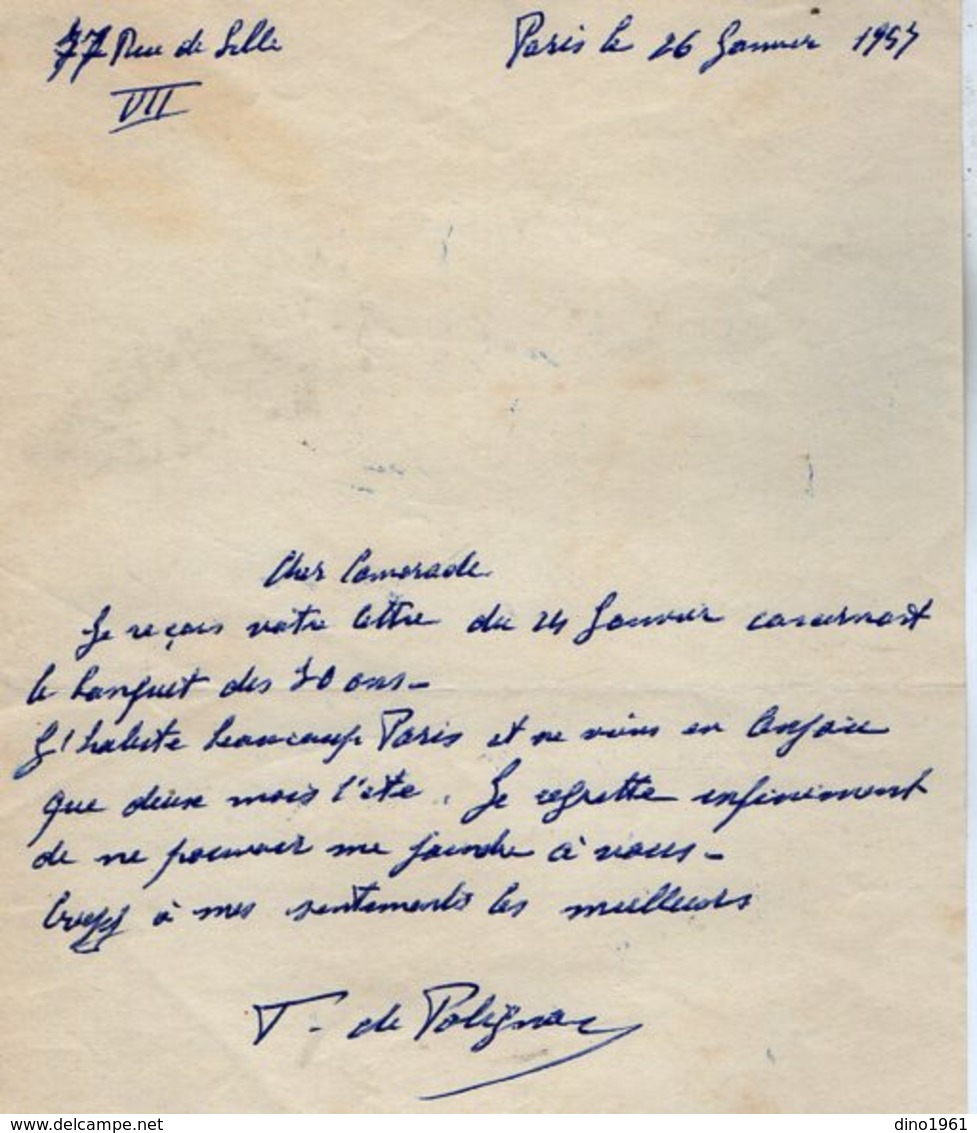 77 Rue de Lille
VII
Paris le 26 Janvier 1957
Cher Camarade
Je reçois votre lettre du 24 Janvier concernant
le banquet des 70 ans -
J'habite beaucoup Paris et ne viens en Anjou
que deux mois l'été. Je regrette infiniment
de ne pouvoir me joindre à vous -
Croyez à mes sentiments les meilleurs
de Polignac
dino1961